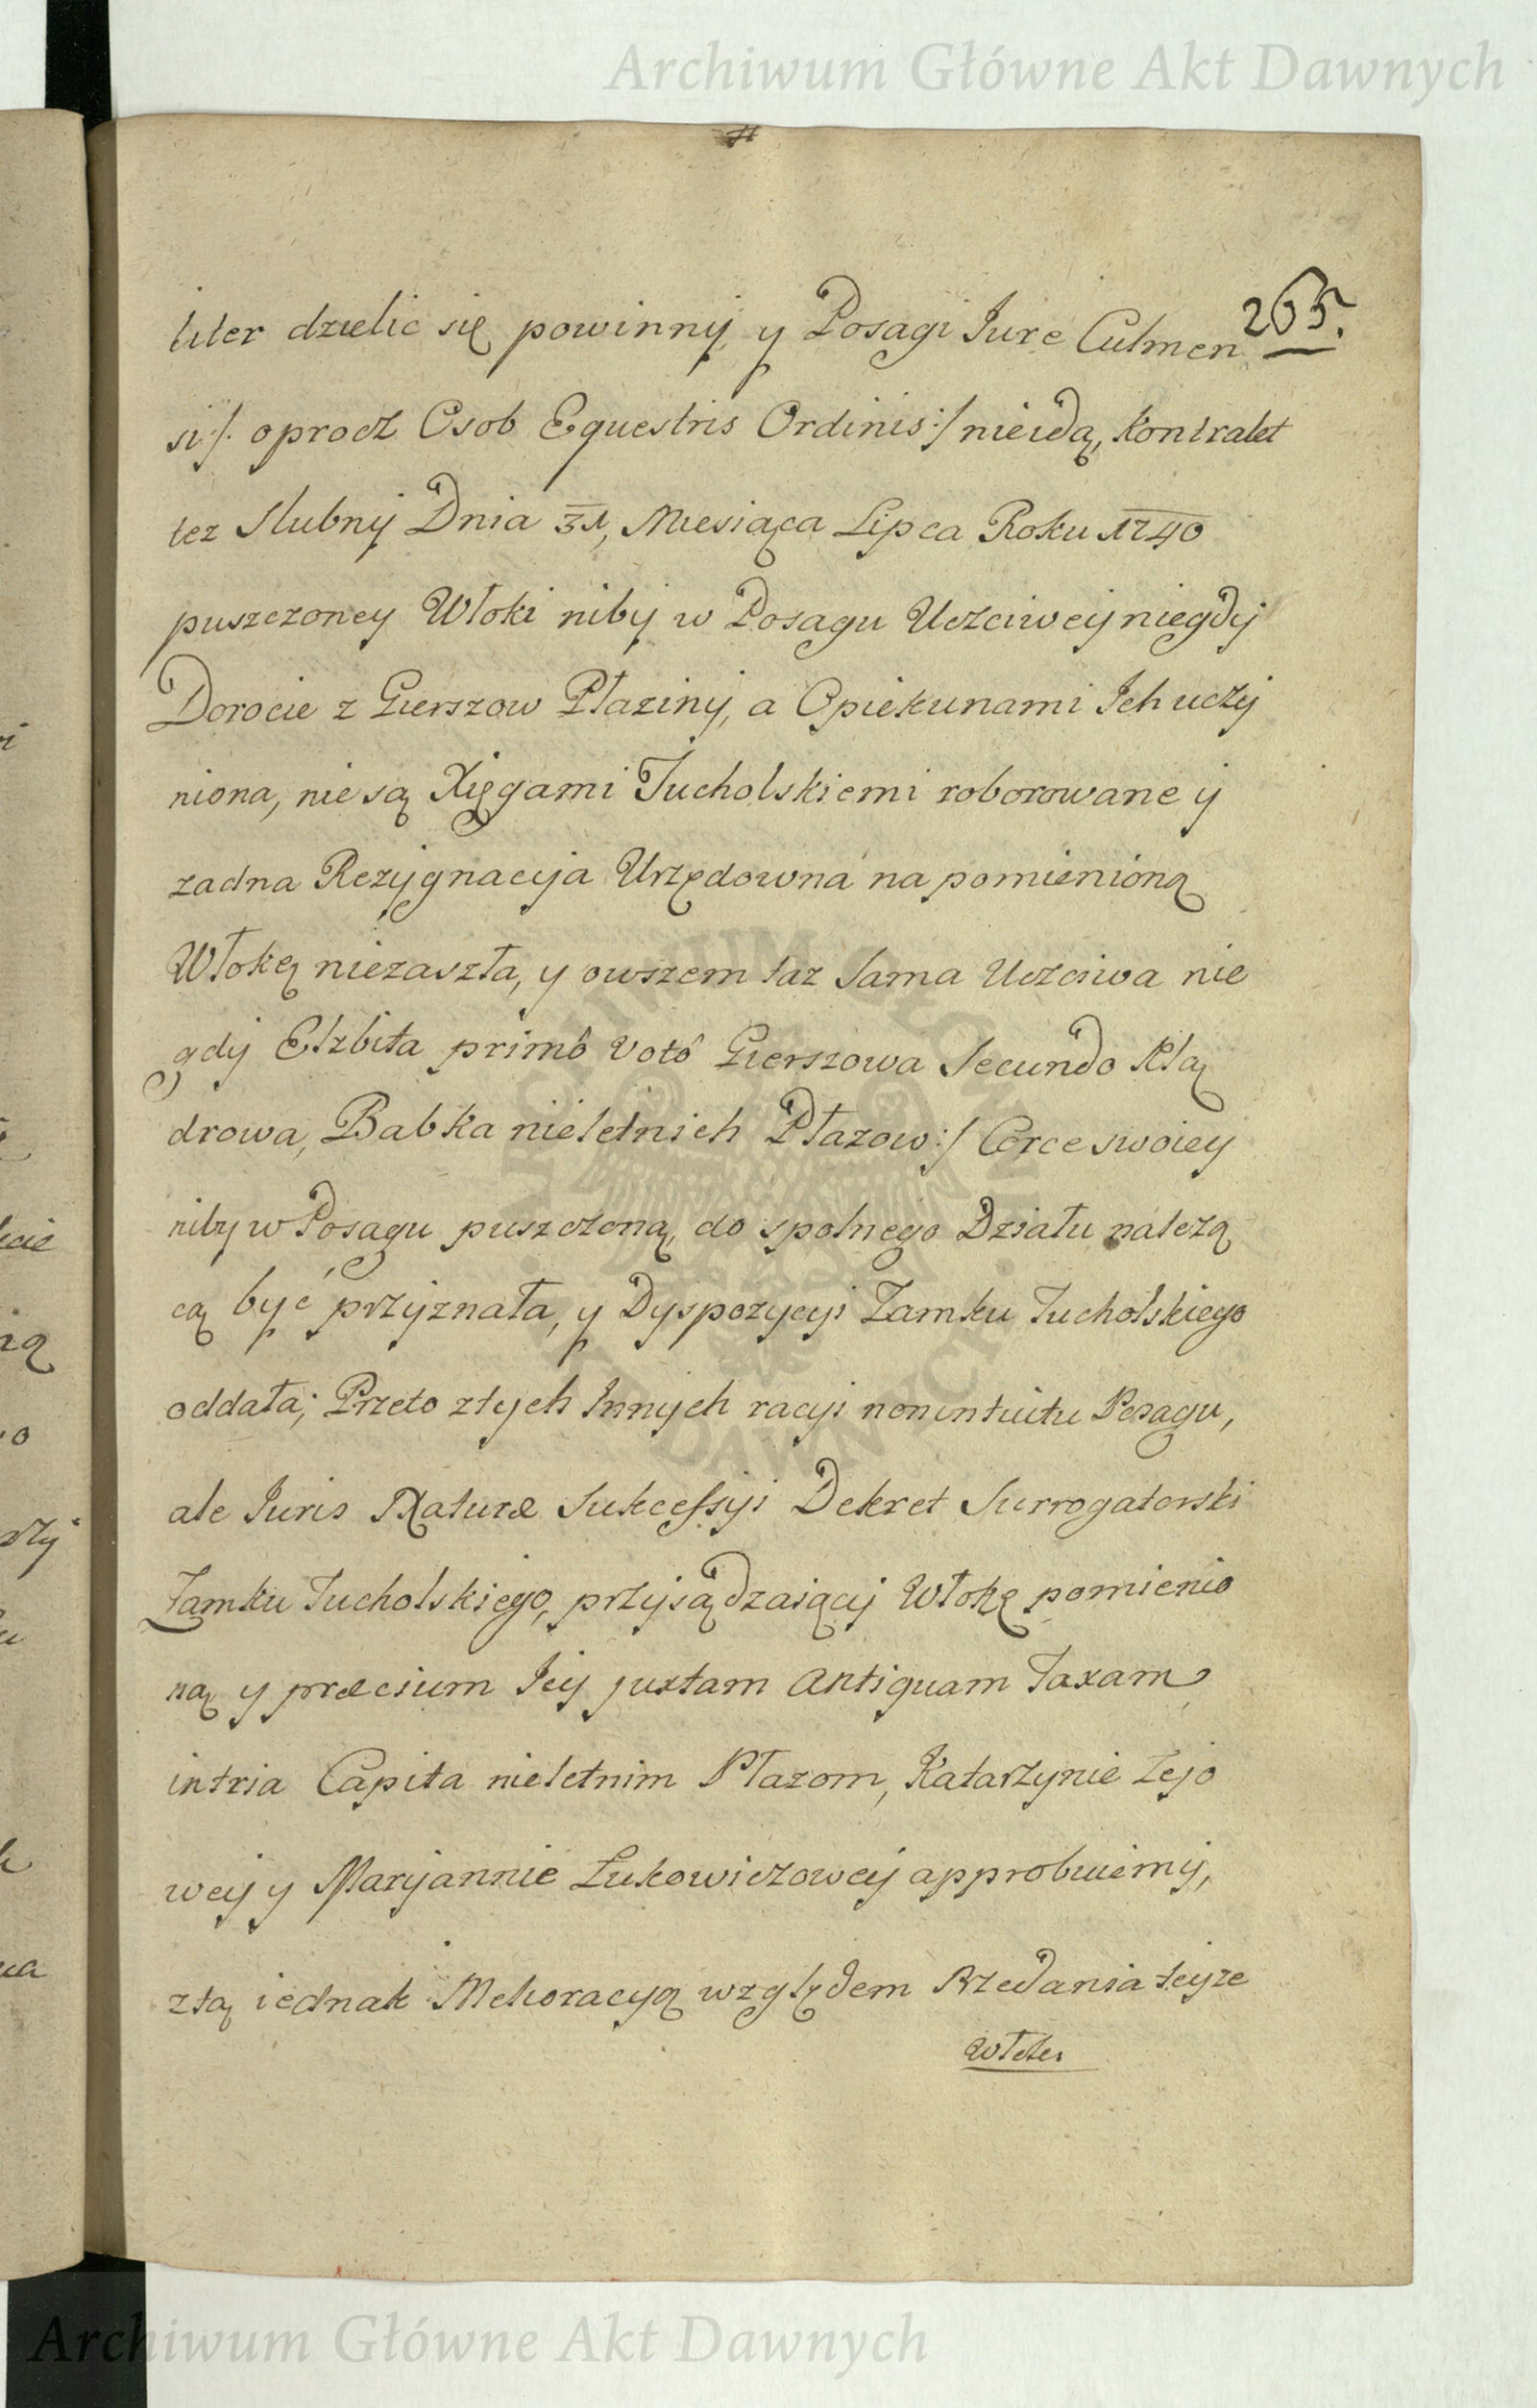 Archiwum Główne Akt Dawnych
265.
liter dzielic się powinny, y Posagi Iure Culmen
si /: oprocz Osob Equestris Ordinis :/ nieidą, Kontrakt
tez Slubny Dnia 31, Miesiąca Lipca Roku 1740
puszczoney Włoki niby w Posagu Uczciwey niegdy
Dorocie z Gierszow Płaziny, a Opiekunami Ich uczy
niona, nie są Xięgami Tucholskiemi roborowane y
zadna Rezygnacyja Urzędowna na pomienioną
Włokę niezaszła, y owszem taz Sama Uczciwa nie
gdy Elzbieta primô votô Gierszowa Secundo Klą
drowa, Babka nieletnich Płazow :/ Corce swoiey
niby w Posagu puszczoną, do spolnego Działu nalezą
cą być przyznała, y Dyspozycyi Zamku Tucholskiego
oddała; Przeto z tych Innych racyi non intuitu Posagu,
ale Iuris Naturæ Sukcessyi Dekret Surrogatorski
Zamku Tucholskiego, przysądzaiący Włokę pomienio
ną y præcium Iey juxtam Antiquam Taxam
in tria Capita nieletnim Płazom, Katarzynie Zejo
wey y Maryannie Łukowiczowey approbuiemy,
z tą iednak Melioracyą względem Rzedania teyze